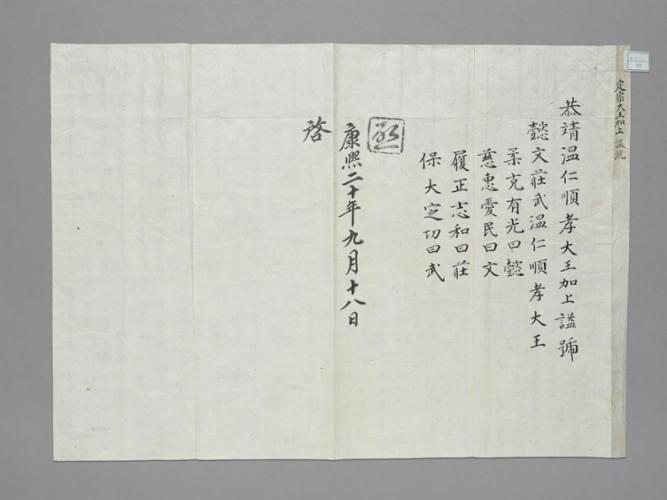 定宗大王加上諡號
恭靖溫仁順孝大王加上諡號
懿文莊武溫仁順孝大王
柔克有光曰懿
慈惠愛民曰文
履正志和曰莊
保大定功曰武
康熙二十年九月十八日
啓